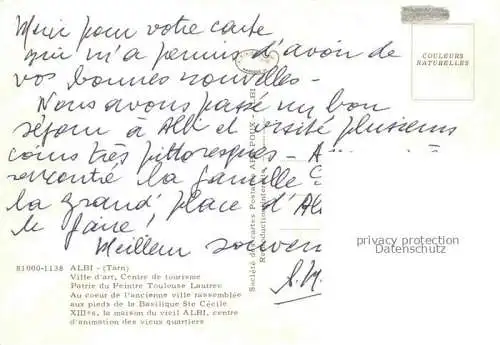 Merci pour votre carte
qui m'a permis d'avoir de
vos bonnes nouvelles -
Nous avons passé un bon
séjour à Albi et visité plusieurs
coins très pittoresques - A
rencontré la famille
la grand' place d'Al
le faire!
Meilleur souven
COULEURS
NATURELLES
Société des Cartes Postales APA-POUX - ALBI
Reproduction interdite
privacy protection
Datenschutz
81000-1138 ALBI - (Tarn)
Ville d'art, Centre de tourisme
Patrie du Peintre Toulouse Lautrec
Au coeur de l'ancienne ville rassemblée
aux pieds de la Basilique Ste Cécile
XIII°s, la maison du vieil ALBI, centre
d'animation des vieux quartiers